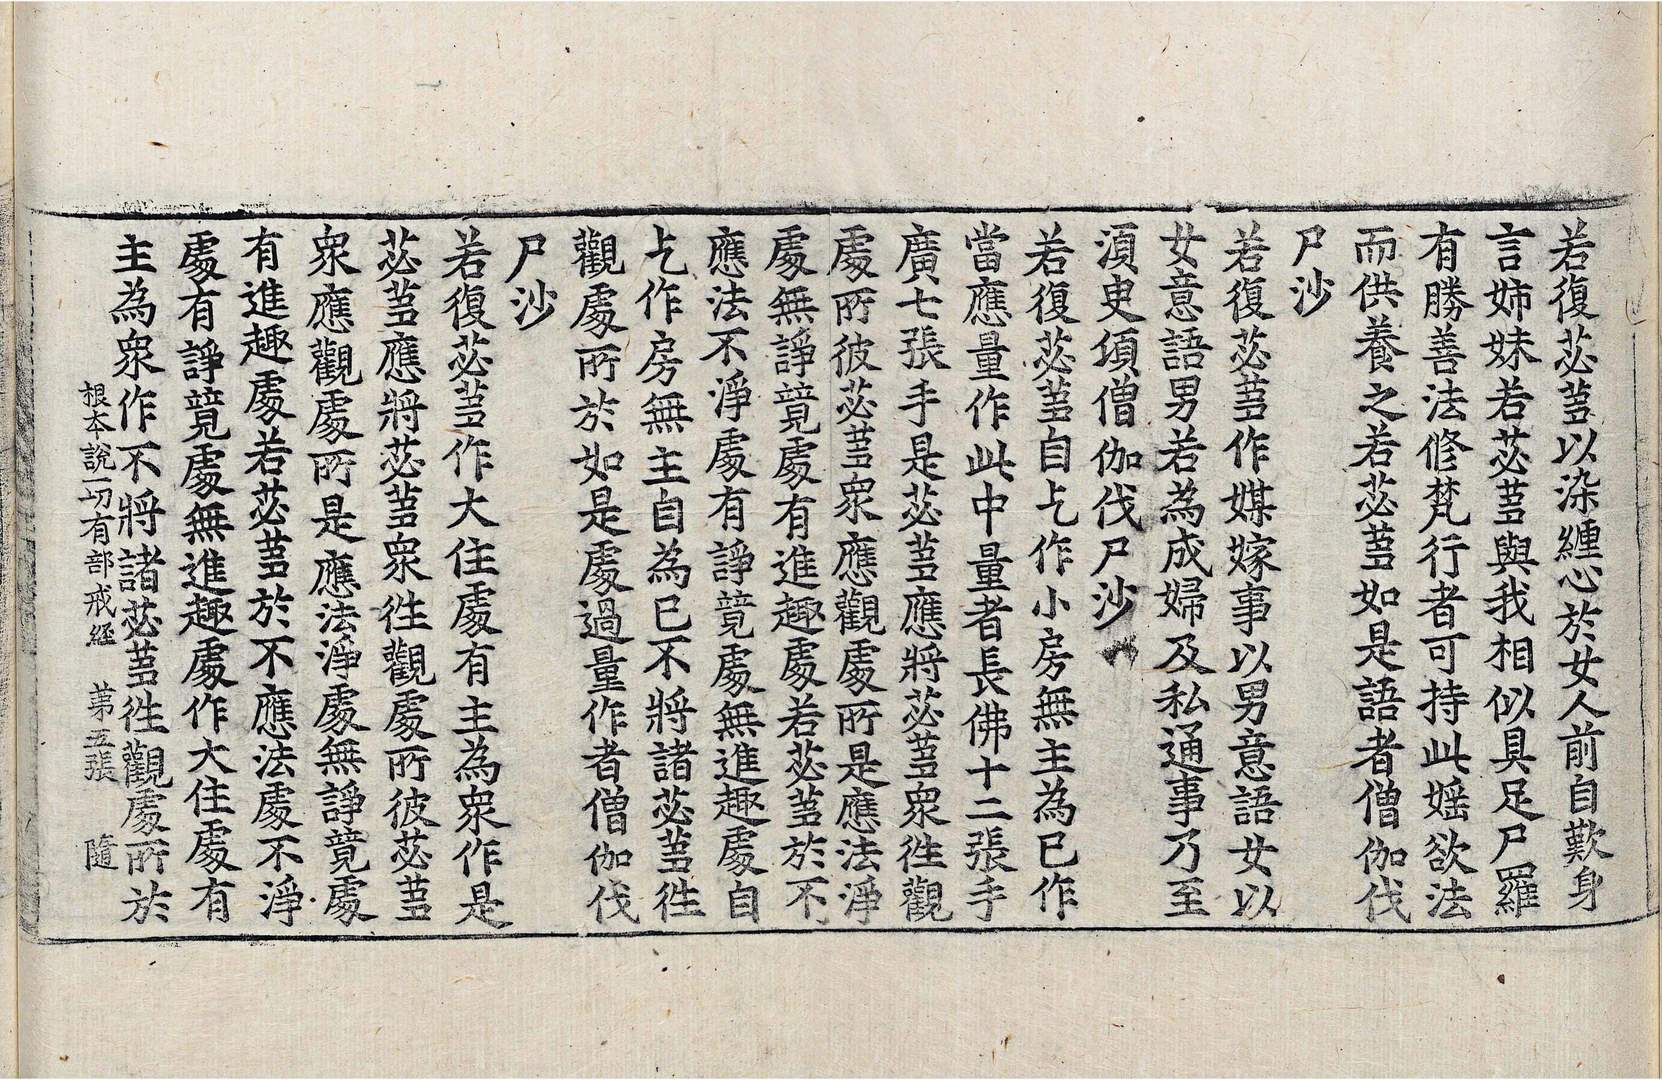 若復苾蒭以染纏心於女人前自歎身
言姉妹若苾蒭與我相似具足尸羅
有勝善法修梵行者可持此婬欲法
而供養之若苾蒭如是語者僧伽伐
尸沙
若復苾蒭作媒嫁事以男意語女以
女意語男若為成婦及私通事乃至
湏臾頃僧伽伐尸沙
若復苾蒭自乞作小房無主為己作
當應量作此中量者長佛十二張手
廣七張手是苾蒭應將苾蒭衆徃觀
處所彼苾蒭衆應觀處所是應法淨
處無諍競處有進趣處若苾蒭於不
應法不淨處有諍競處無進趣處自
乞作房無主自為己不將諸苾蒭徃
觀處所於如是處過量作者僧伽伐
尸沙
若復苾蒭作大住處有主為衆作是
苾蒭應將苾蒭衆徃觀處所彼苾蒭
衆應觀處所是應法淨處無諍競處
有進趣處若苾蒭於不應法處不淨
處有諍競處無進趣處作大住處有
主為衆作不將諸苾蒭徃觀處所於
根本說一切有部戒經 第五張 隨